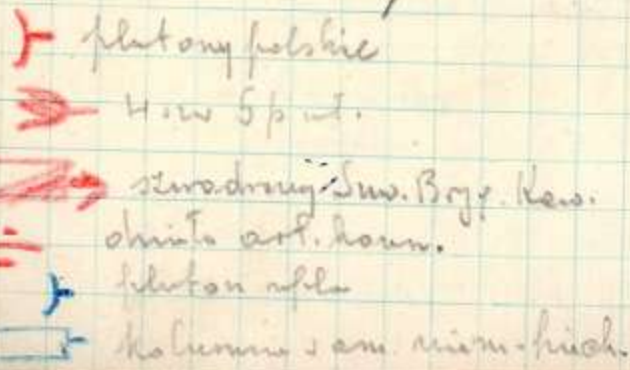 plutony polskie
4. w 5 p. uł.
szwadrony Suw. Bryg. Kaw.
działo art. konn.
pluton npla
kolumna sam. niem. piech.